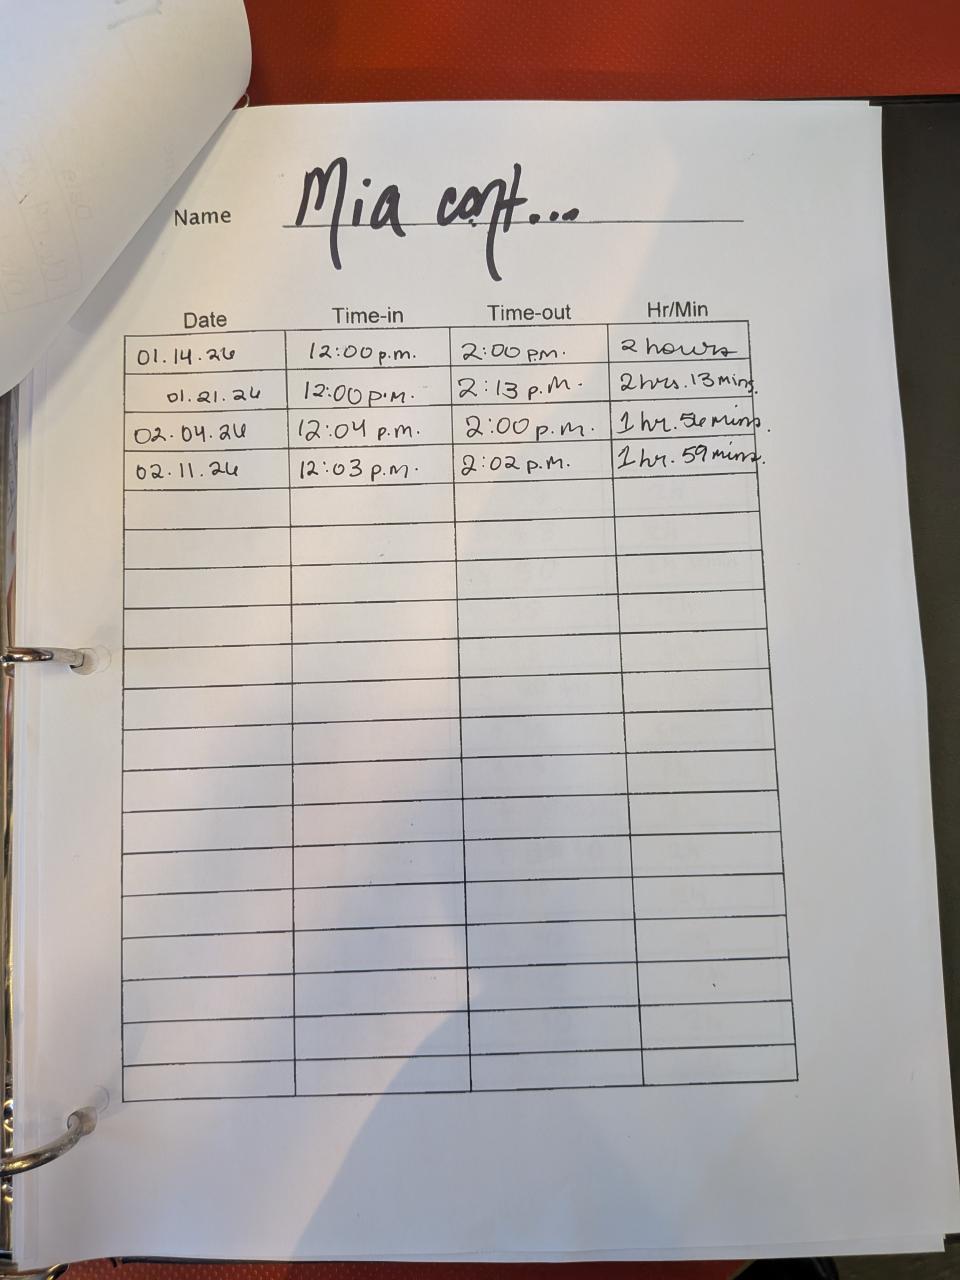 Name Mia cont...
Date Time-in Time-out Hr/Min
01.14.26 12:00 p.m. 2:00 p.m. 2 hours
01.21.26 12:00 p.m. 2:13 p.m. 2 hrs. 13 mins.
02.04.26 12:04 p.m. 2:00 p.m. 1 hr. 56 mins.
02.11.26 12:03 p.m. 2:02 p.m. 1 hr. 59 mins.